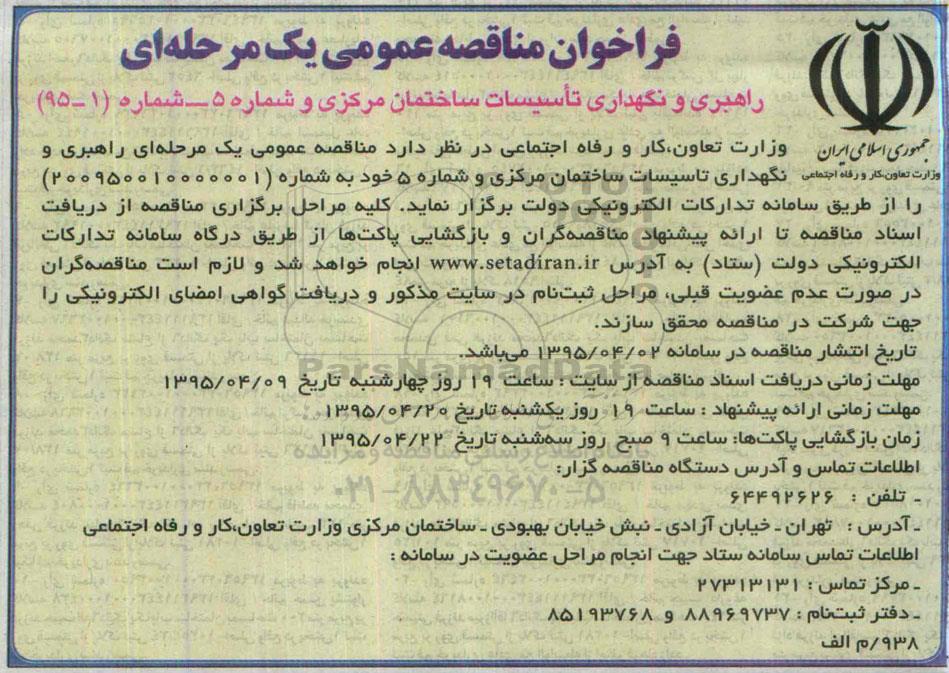 فراخوان مناقصه عمومی یک مرحله‌ای
راهبری و نگهداری تأسیسات ساختمان مرکزی و شماره ۵ ــ شماره (۱ ـ ۹۵)
جمهوری اسلامی ایران
وزارت تعاون،کار و رفاه اجتماعی
وزارت تعاون،کار و رفاه اجتماعی در نظر دارد مناقصه عمومی یک مرحله‌ای راهبری و
نگهداری تاسیسات ساختمان مرکزی و شماره ۵ خود به شماره (۲۰۰۹۵۰۰۱۰۰۰۰۰۰۱)
را از طریق سامانه تدارکات الکترونیکی دولت برگزار نماید. کلیه مراحل برگزاری مناقصه از دریافت
اسناد مناقصه تا ارائه پیشنهاد مناقصه‌گران و بازگشایی پاکت‌ها از طریق درگاه سامانه تدارکات
الکترونیکی دولت (ستاد) به آدرس www.setadiran.ir انجام خواهد شد و لازم است مناقصه‌گران
در صورت عدم عضویت قبلی، مراحل ثبت‌نام در سایت مذکور و دریافت گواهی امضای الکترونیکی را
جهت شرکت در مناقصه محقق سازند.
تاریخ انتشار مناقصه در سامانه ۱۳۹۵/۰۴/۰۲ می‌باشد.
مهلت زمانی دریافت اسناد مناقصه از سایت : ساعت ۱۹ روز چهارشنبه تاریخ ۱۳۹۵/۰۴/۰۹
مهلت زمانی ارائه پیشنهاد : ساعت ۱۹ روز یکشنبه تاریخ ۱۳۹۵/۰۴/۲۰
زمان بازگشایی پاکت‌ها: ساعت ۹ صبح روز سه‌شنبه تاریخ ۱۳۹۵/۰۴/۲۲
اطلاعات تماس و آدرس دستگاه مناقصه گزار:
ـ تلفن : ۶۴۴۹۲۶۲۶
ـ آدرس : تهران ـ خیابان آزادی ـ نبش خیابان بهبودی ـ ساختمان مرکزی وزارت تعاون،کار و رفاه اجتماعی
اطلاعات تماس سامانه ستاد جهت انجام مراحل عضویت در سامانه :
ـ مرکز تماس : ۲۷۳۱۳۱۳۱
ـ دفتر ثبت‌نام : ۸۸۹۶۹۷۳۷ و ۸۵۱۹۳۷۶۸
۹۳۸/م الف
ParsNamadData
پایگاه اطلاع رسانی مناقصه و مزایده
۰۲۱-۸۸۳۴۹۶۷۰-۵